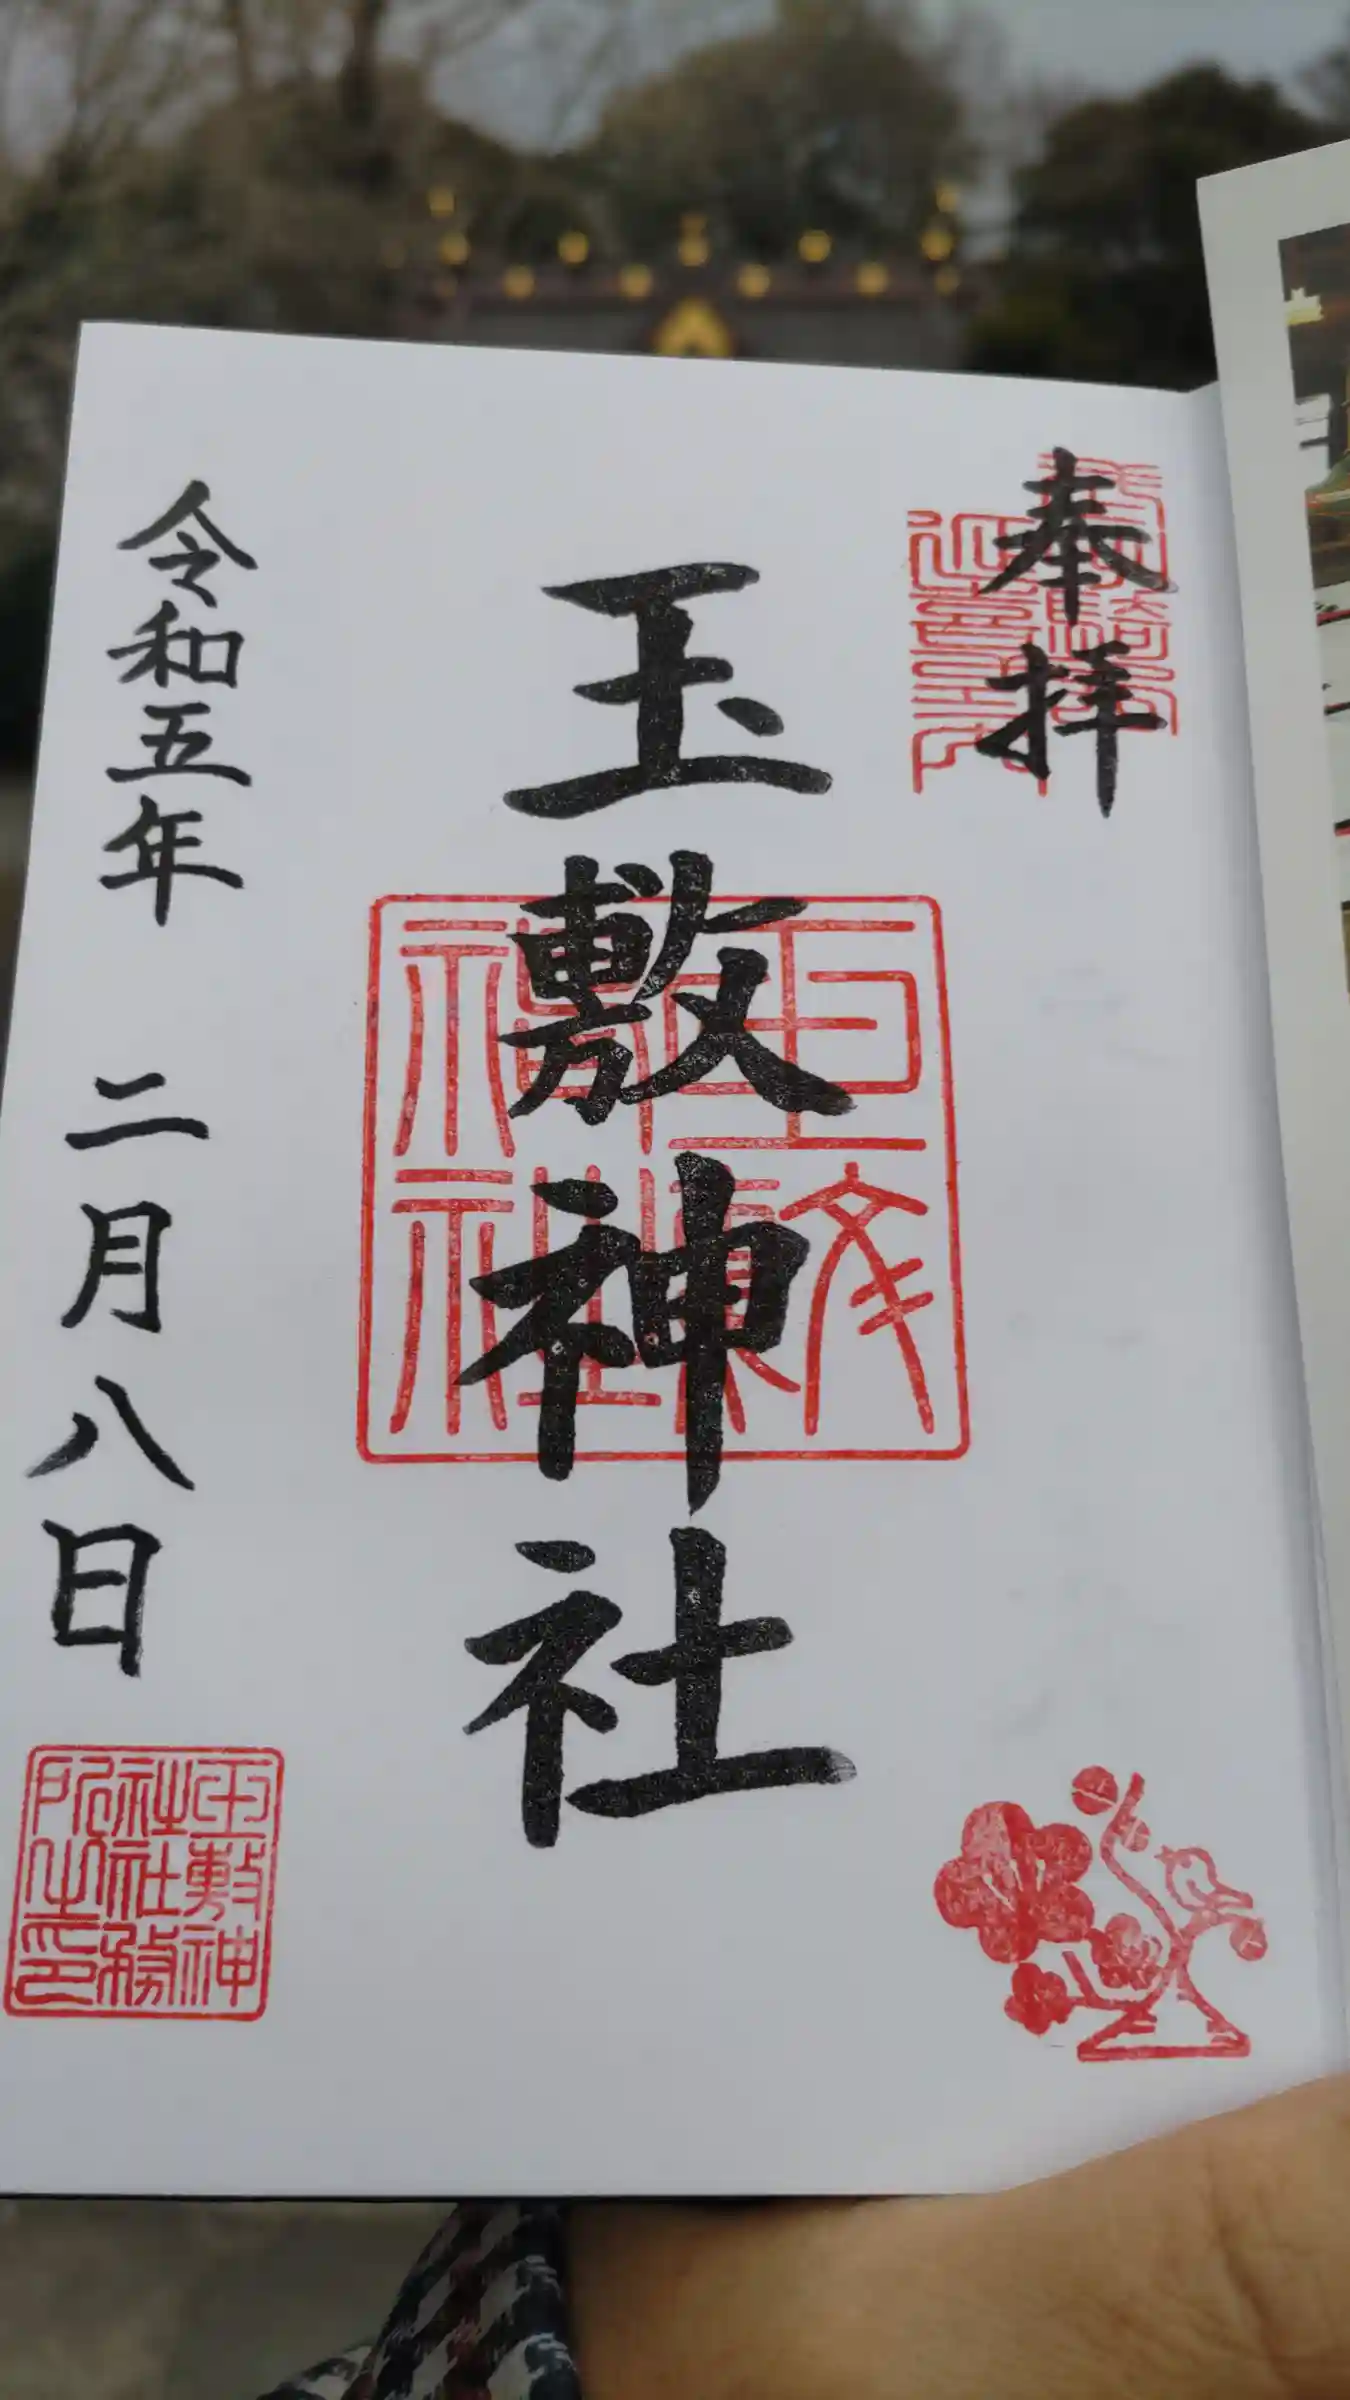 奉拝
玉敷神社
令和五年 二月八日
玉敷神社社務所之印